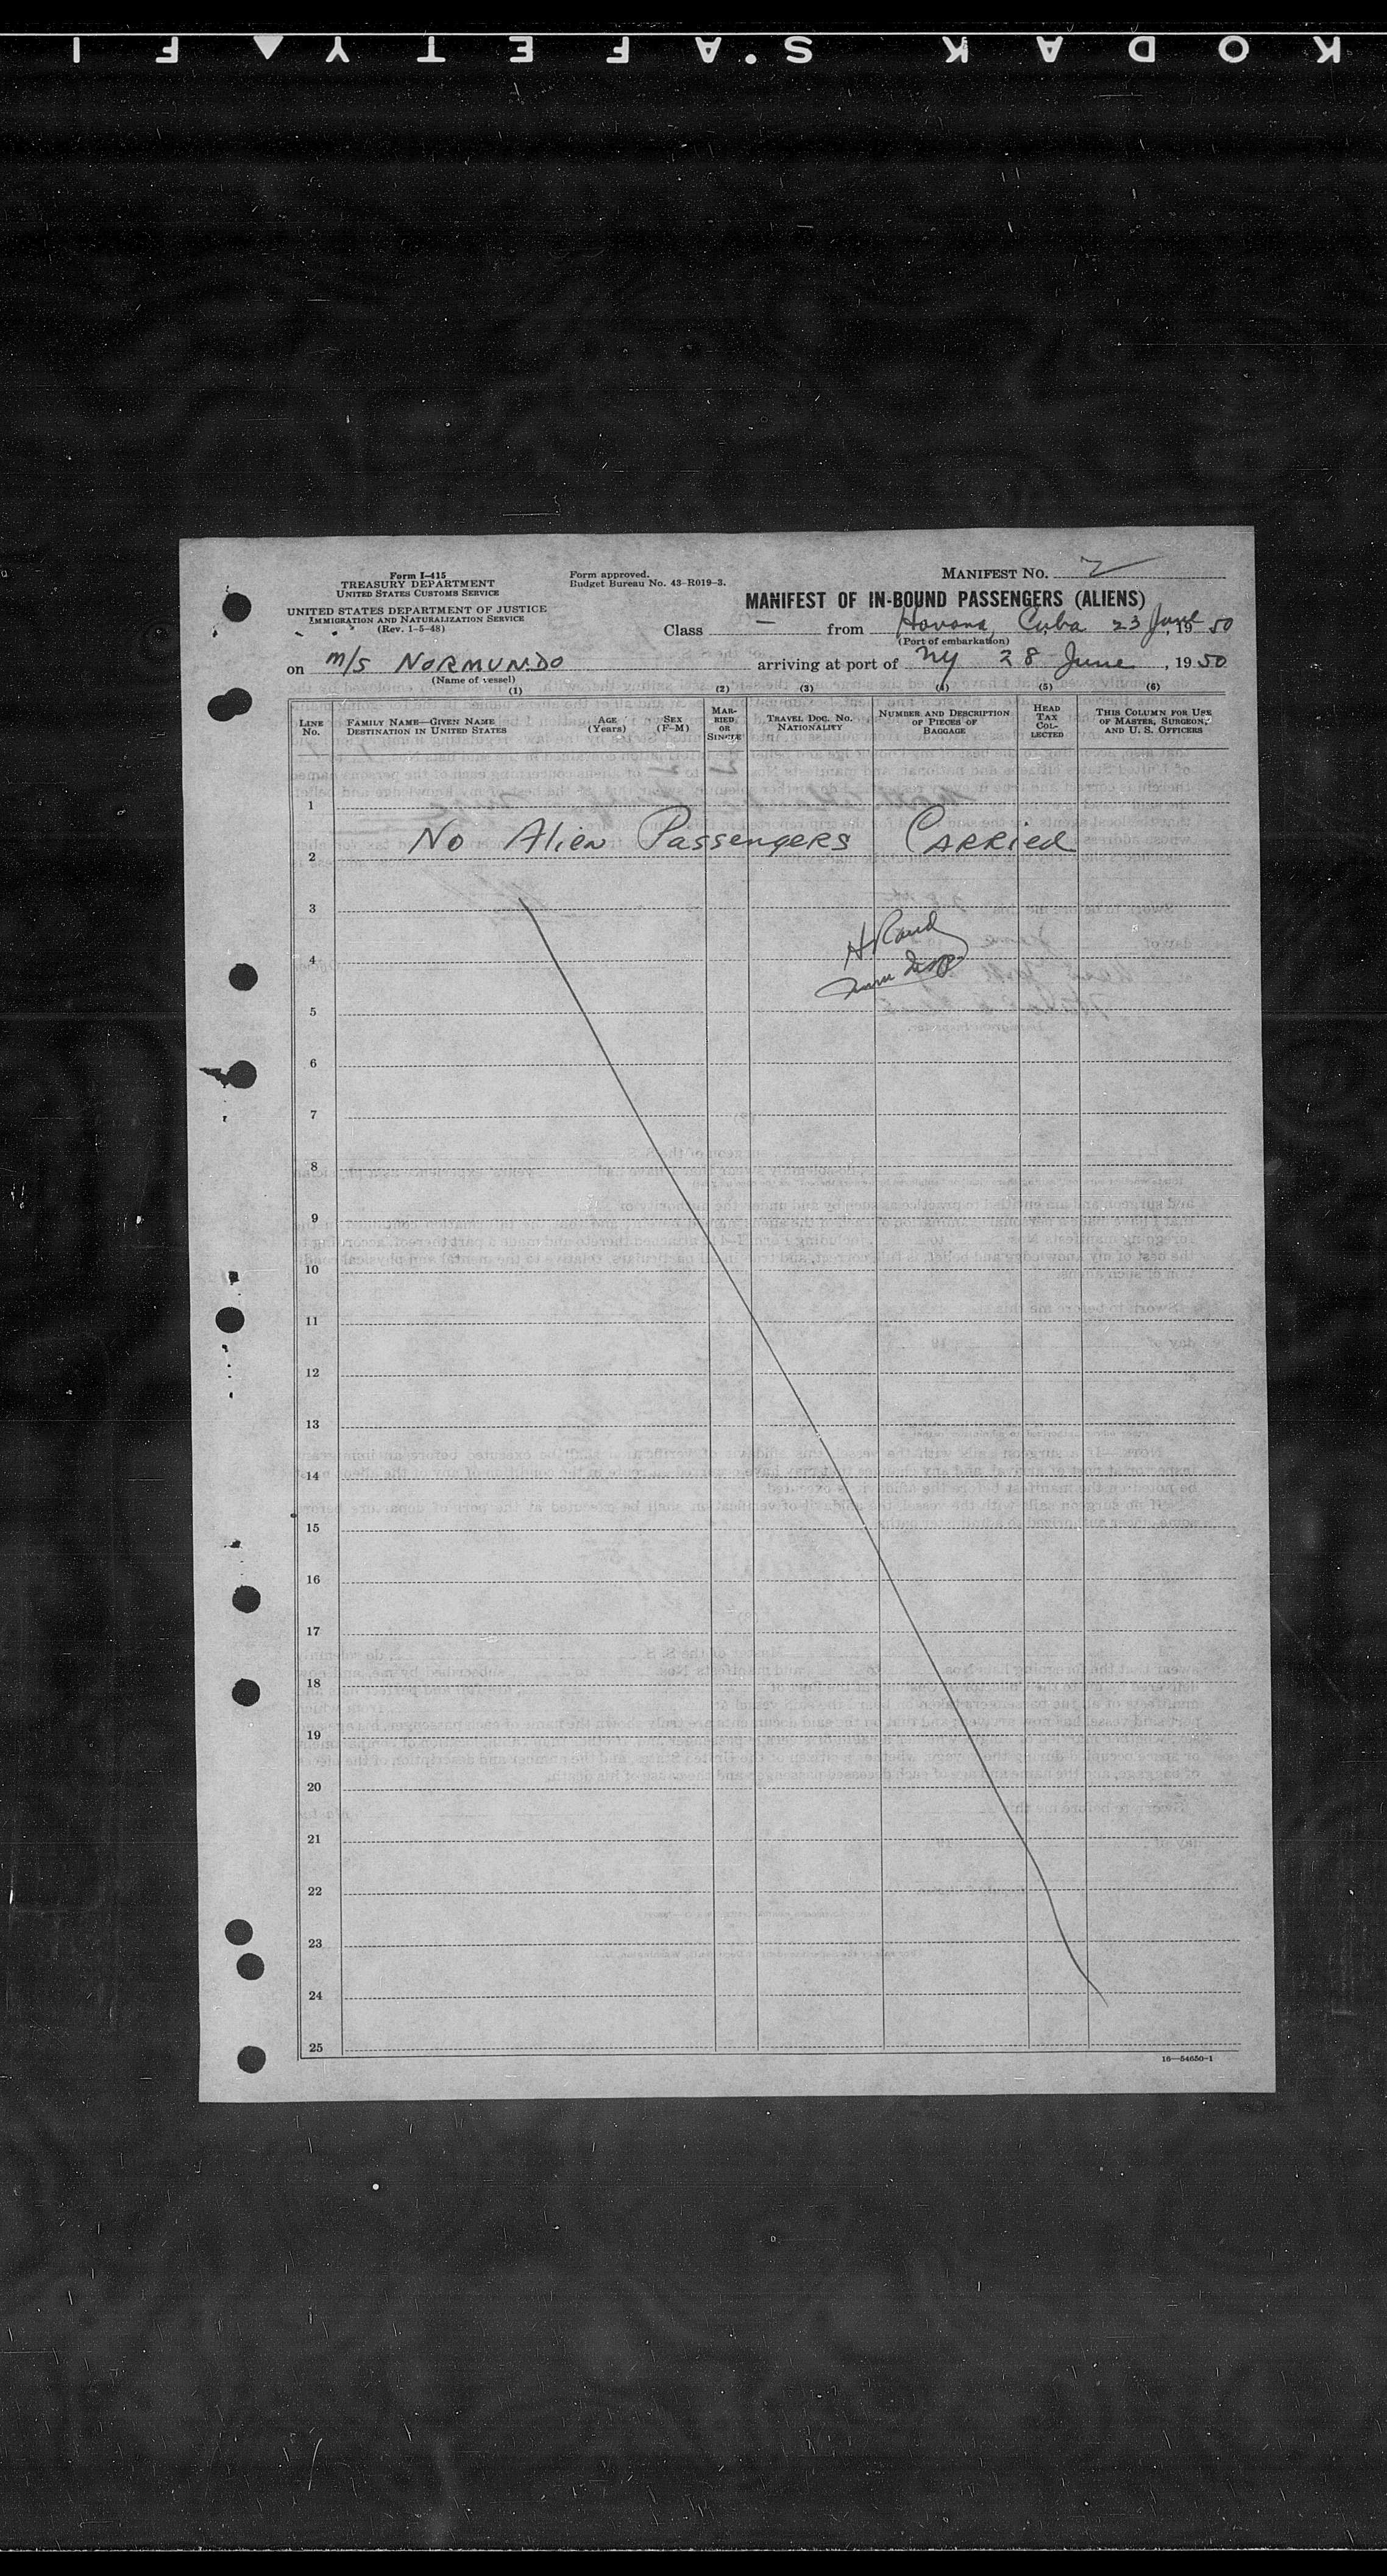 KODAK S'AFETY ▲ FI
Form I-415
TREASURY DEPARTMENT
UNITED STATES CUSTOMS SERVICE
UNITED STATES DEPARTMENT OF JUSTICE
IMMIGRATION AND NATURALIZATION SERVICE
(Rev. 1-5-48)
Form approved.
Budget Bureau No. 43-R019-3.
MANIFEST NO. 2
MANIFEST OF IN-BOUND PASSENGERS (ALIENS)
Class — from Havana, Cuba 23 June, 1950
(Port of embarkation)
on M/S NORMUNDO arriving at port of NY 28 June, 1950
(Name of vessel)
(1) (2) (3) (4) (5) (6)
LINE No.
FAMILY NAME—GIVEN NAME
DESTINATION IN UNITED STATES
AGE (Years)
SEX (F-M)
MARRIED OR SINGLE
TRAVEL DOC. NO.
NATIONALITY
NUMBER AND DESCRIPTION OF PIECES OF BAGGAGE
HEAD TAX COLLECTED
THIS COLUMN FOR USE OF MASTER, SURGEON, AND U. S. OFFICERS
1
No Alien Passengers Carried
2
3
H Rand
4
5
6
7
8
9
10
11
12
13
14
15
16
17
18
19
20
21
22
23
24
25
16—54650-1